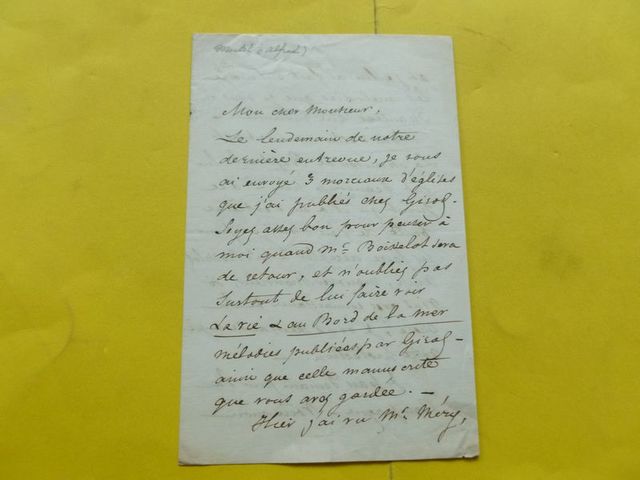 Mon cher Monsieur,
Le lendemain de notre
dernière entrevue, je vous
ai envoyé 3 morceaux d'églises
que j'ai publiés chez Girod.
Soyez assez bon pour penser à
moi quand Mr. Boisselot sera
de retour, et n'oubliez pas
surtout de lui faire voir
La vie & au Bord de la mer
mélodies publiées par Girod –
ainsi que celle manuscrite
que vous avez gardée. –
Hier j'ai vu Mr. Méry,